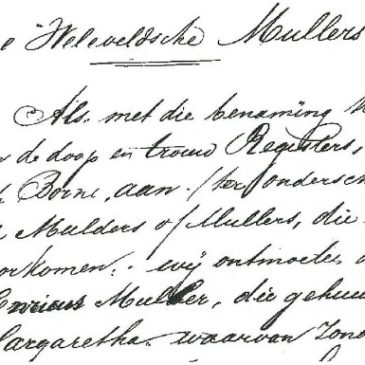 e "Weleveldsche Mullers
Als met die benaming
de doop en trouw Registers,
Borne, aan. / ter ondersch
Mulders of Mullers, die
orkomen. wij ontmoeten
Enricus Muller, die gehuw
argaretha. waarvan Zon